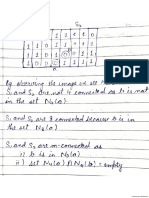 S₂
1 1 1 1 0
1 1 0 1 0 0
1 1 0 1 1 1
1 1 0 0 1 1 1
S₁
By observing the image we see
S₁ and S₂ are not 4 connected as b is not
in the set N₄(a)
S₁ and S₂ are 8 connected because b is in
the set N₈(a)
S₁ and S₂ are m-connected as
i) b is in N₈(a)
ii) set N₄(a) ∩ N₄(b) = empty